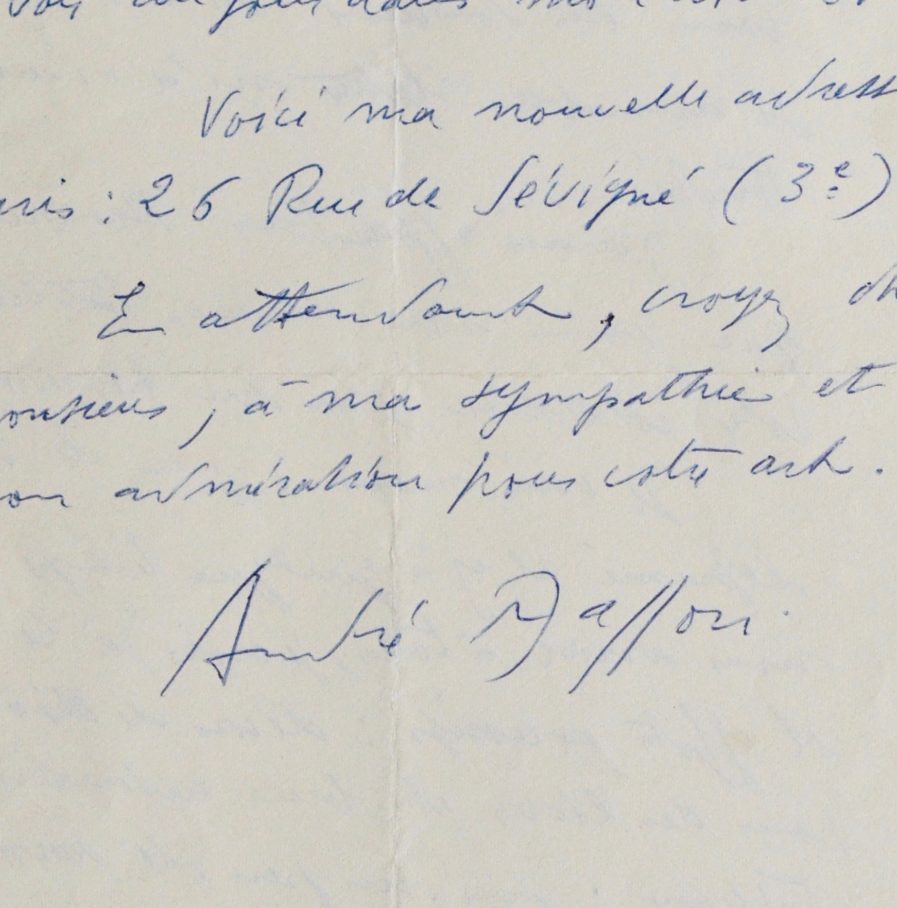 Voici ma nouvelle adress
ris : 26 Rue de Sévigné (3e)
En attendant, croyez
onsieur, à ma sympathie et
on admiration pour votre art.
André Masson.